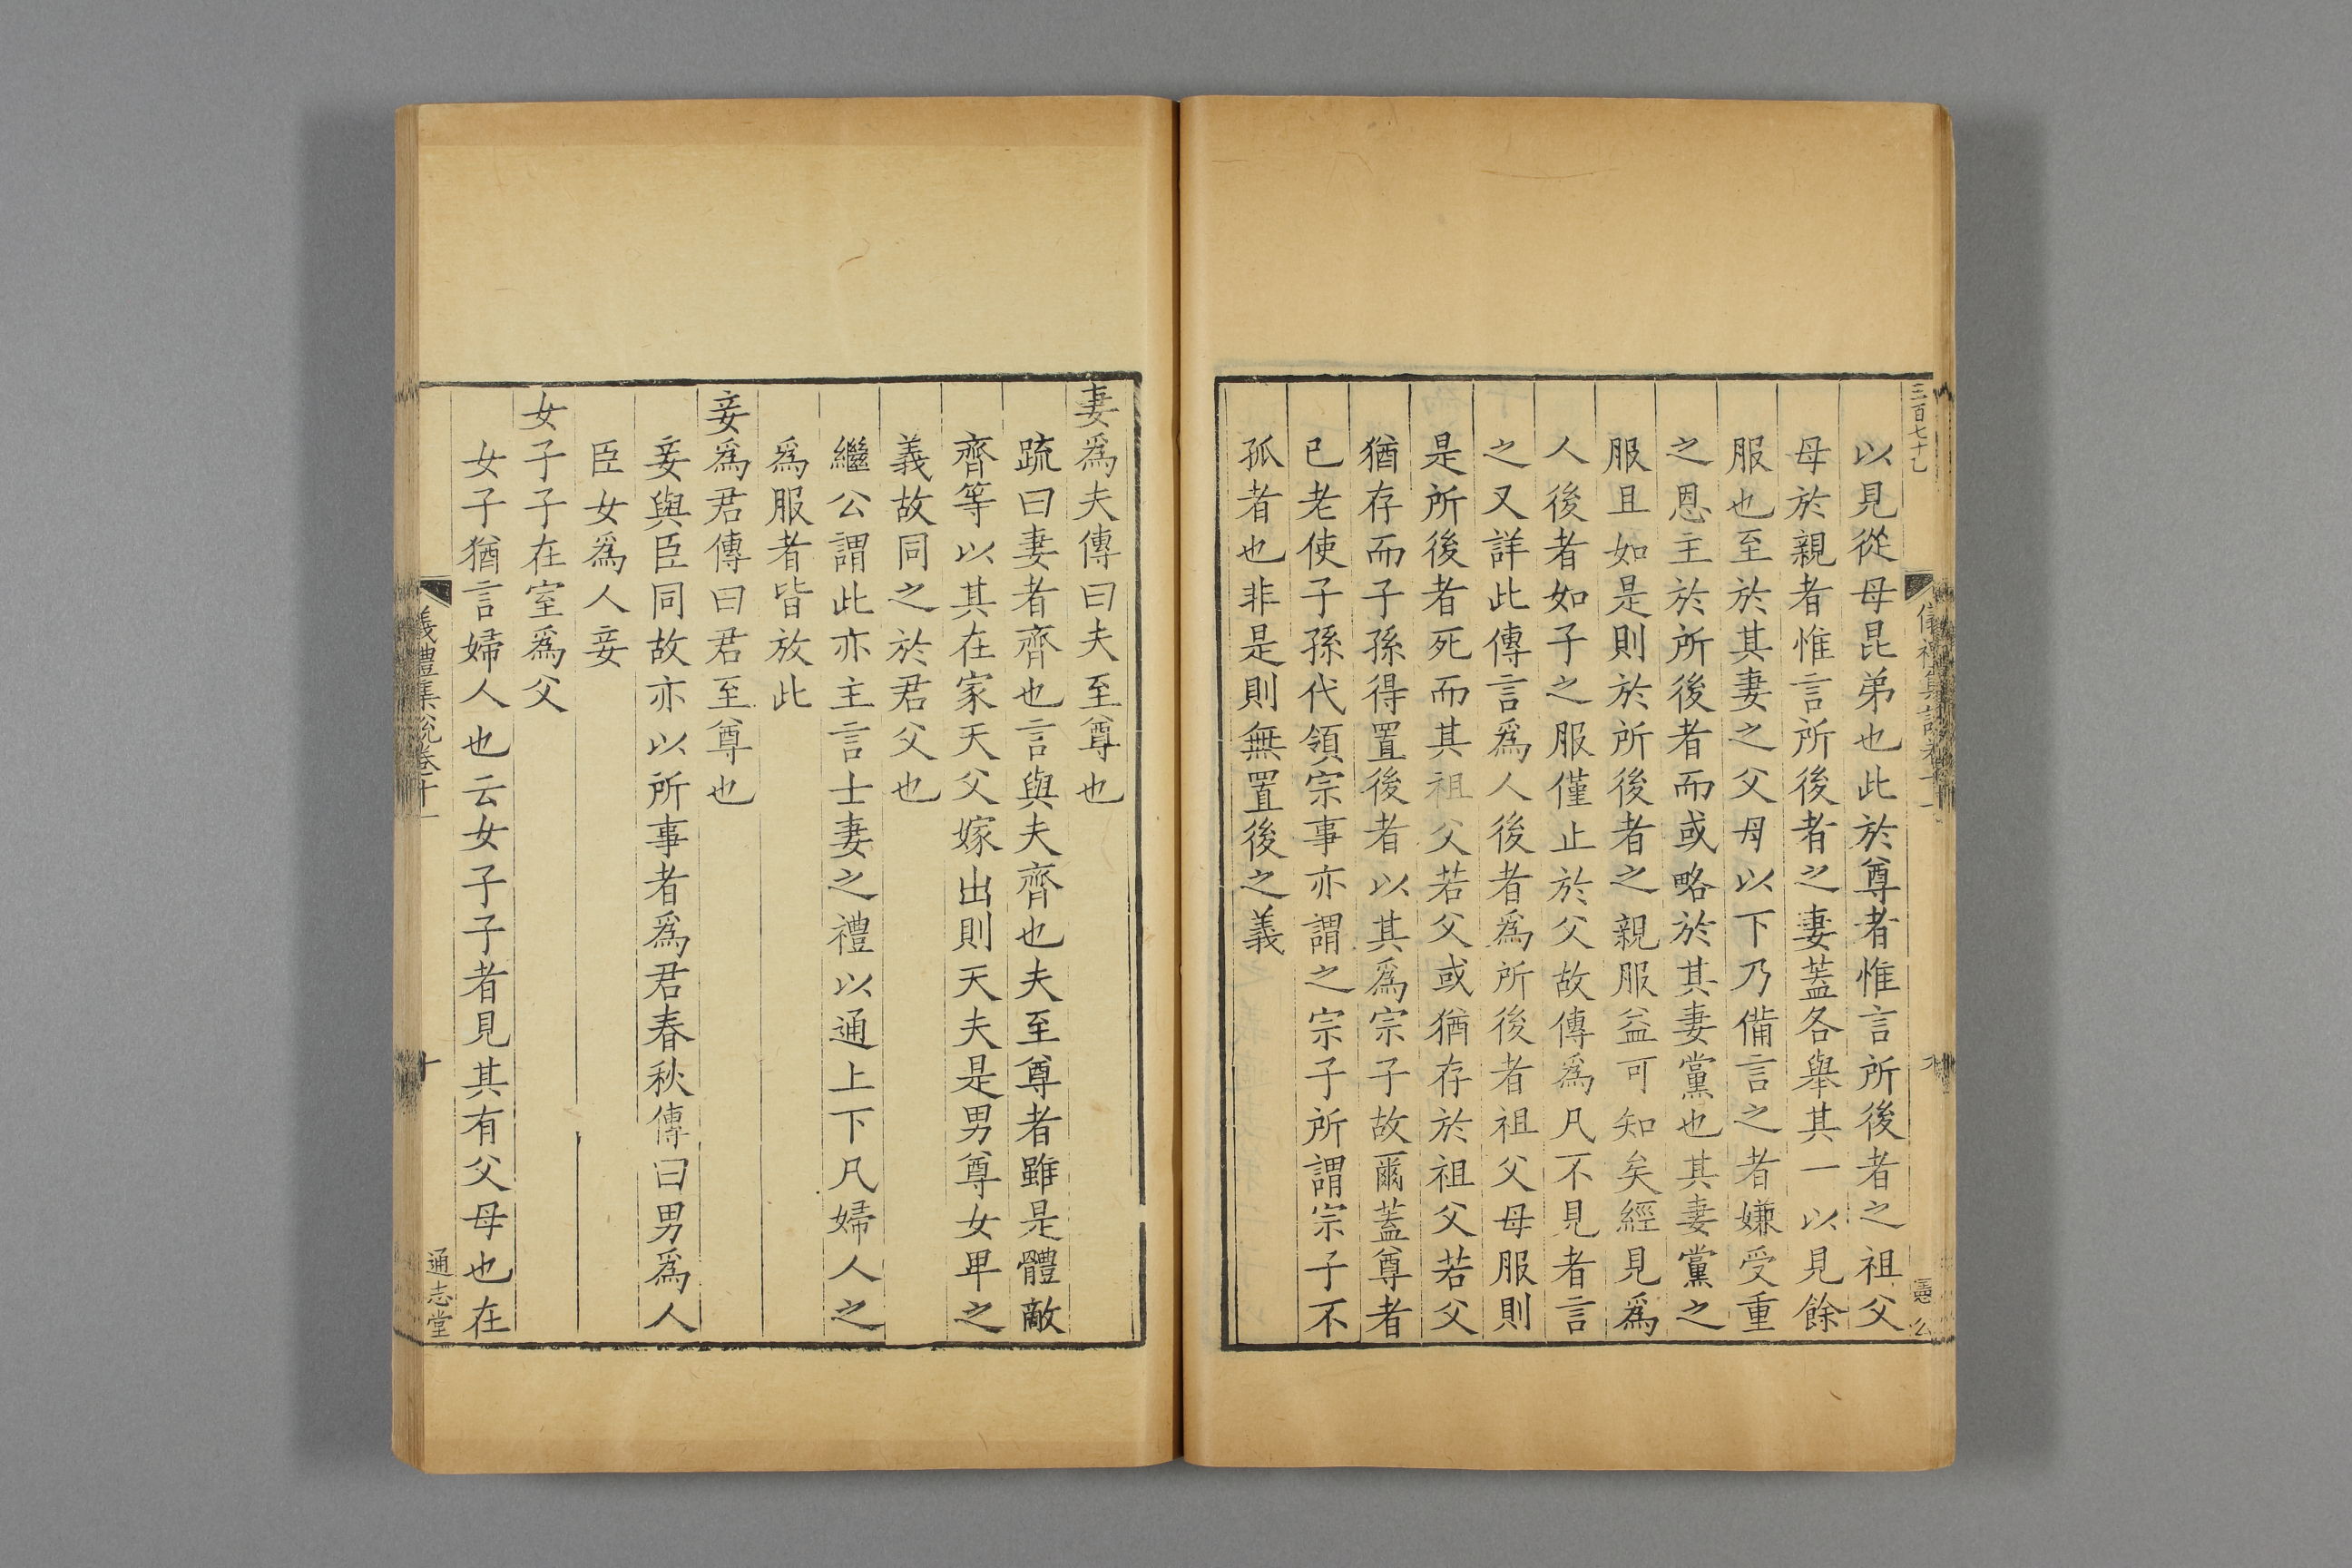 三百七十七
以見從母昆弟也此於尊者惟言所後者之祖父
母於親者惟言所後者之妻蓋各舉其一以見餘
服也至於其妻之父母以下乃備言之者嫌受重
之恩主於所後者而或略於其妻黨也其妻黨之
服且如是則於所後者之親服益可知矣經見爲
人後者如子之服僅止於父故傳爲凡不見者言
之又詳此傳言爲人後者爲所後者祖父母服則
是所後者死而其祖父若父或猶存於祖父若父
猶存而子孫得置後者以其爲宗子故爾蓋尊者
已老使子孫代領宗事亦謂之宗子所謂宗子不
孤者也非是則無置後之義
妻爲夫傳曰夫至尊也
疏曰妻者齊也言與夫齊也夫至尊者雖是體敵
齊等以其在家天父嫁出則天夫是男尊女卑之
義故同之於君父也
繼公謂此亦主言士妻之禮以通上下凡婦人之
爲服者皆放此
妾爲君傳曰君至尊也
妾與臣同故亦以所事者爲君春秋傳曰男爲人
臣女爲人妾
女子子在室爲父
女子猶言婦人也云女子子者見其有父母也在
儀禮集說卷十一
十
通志堂